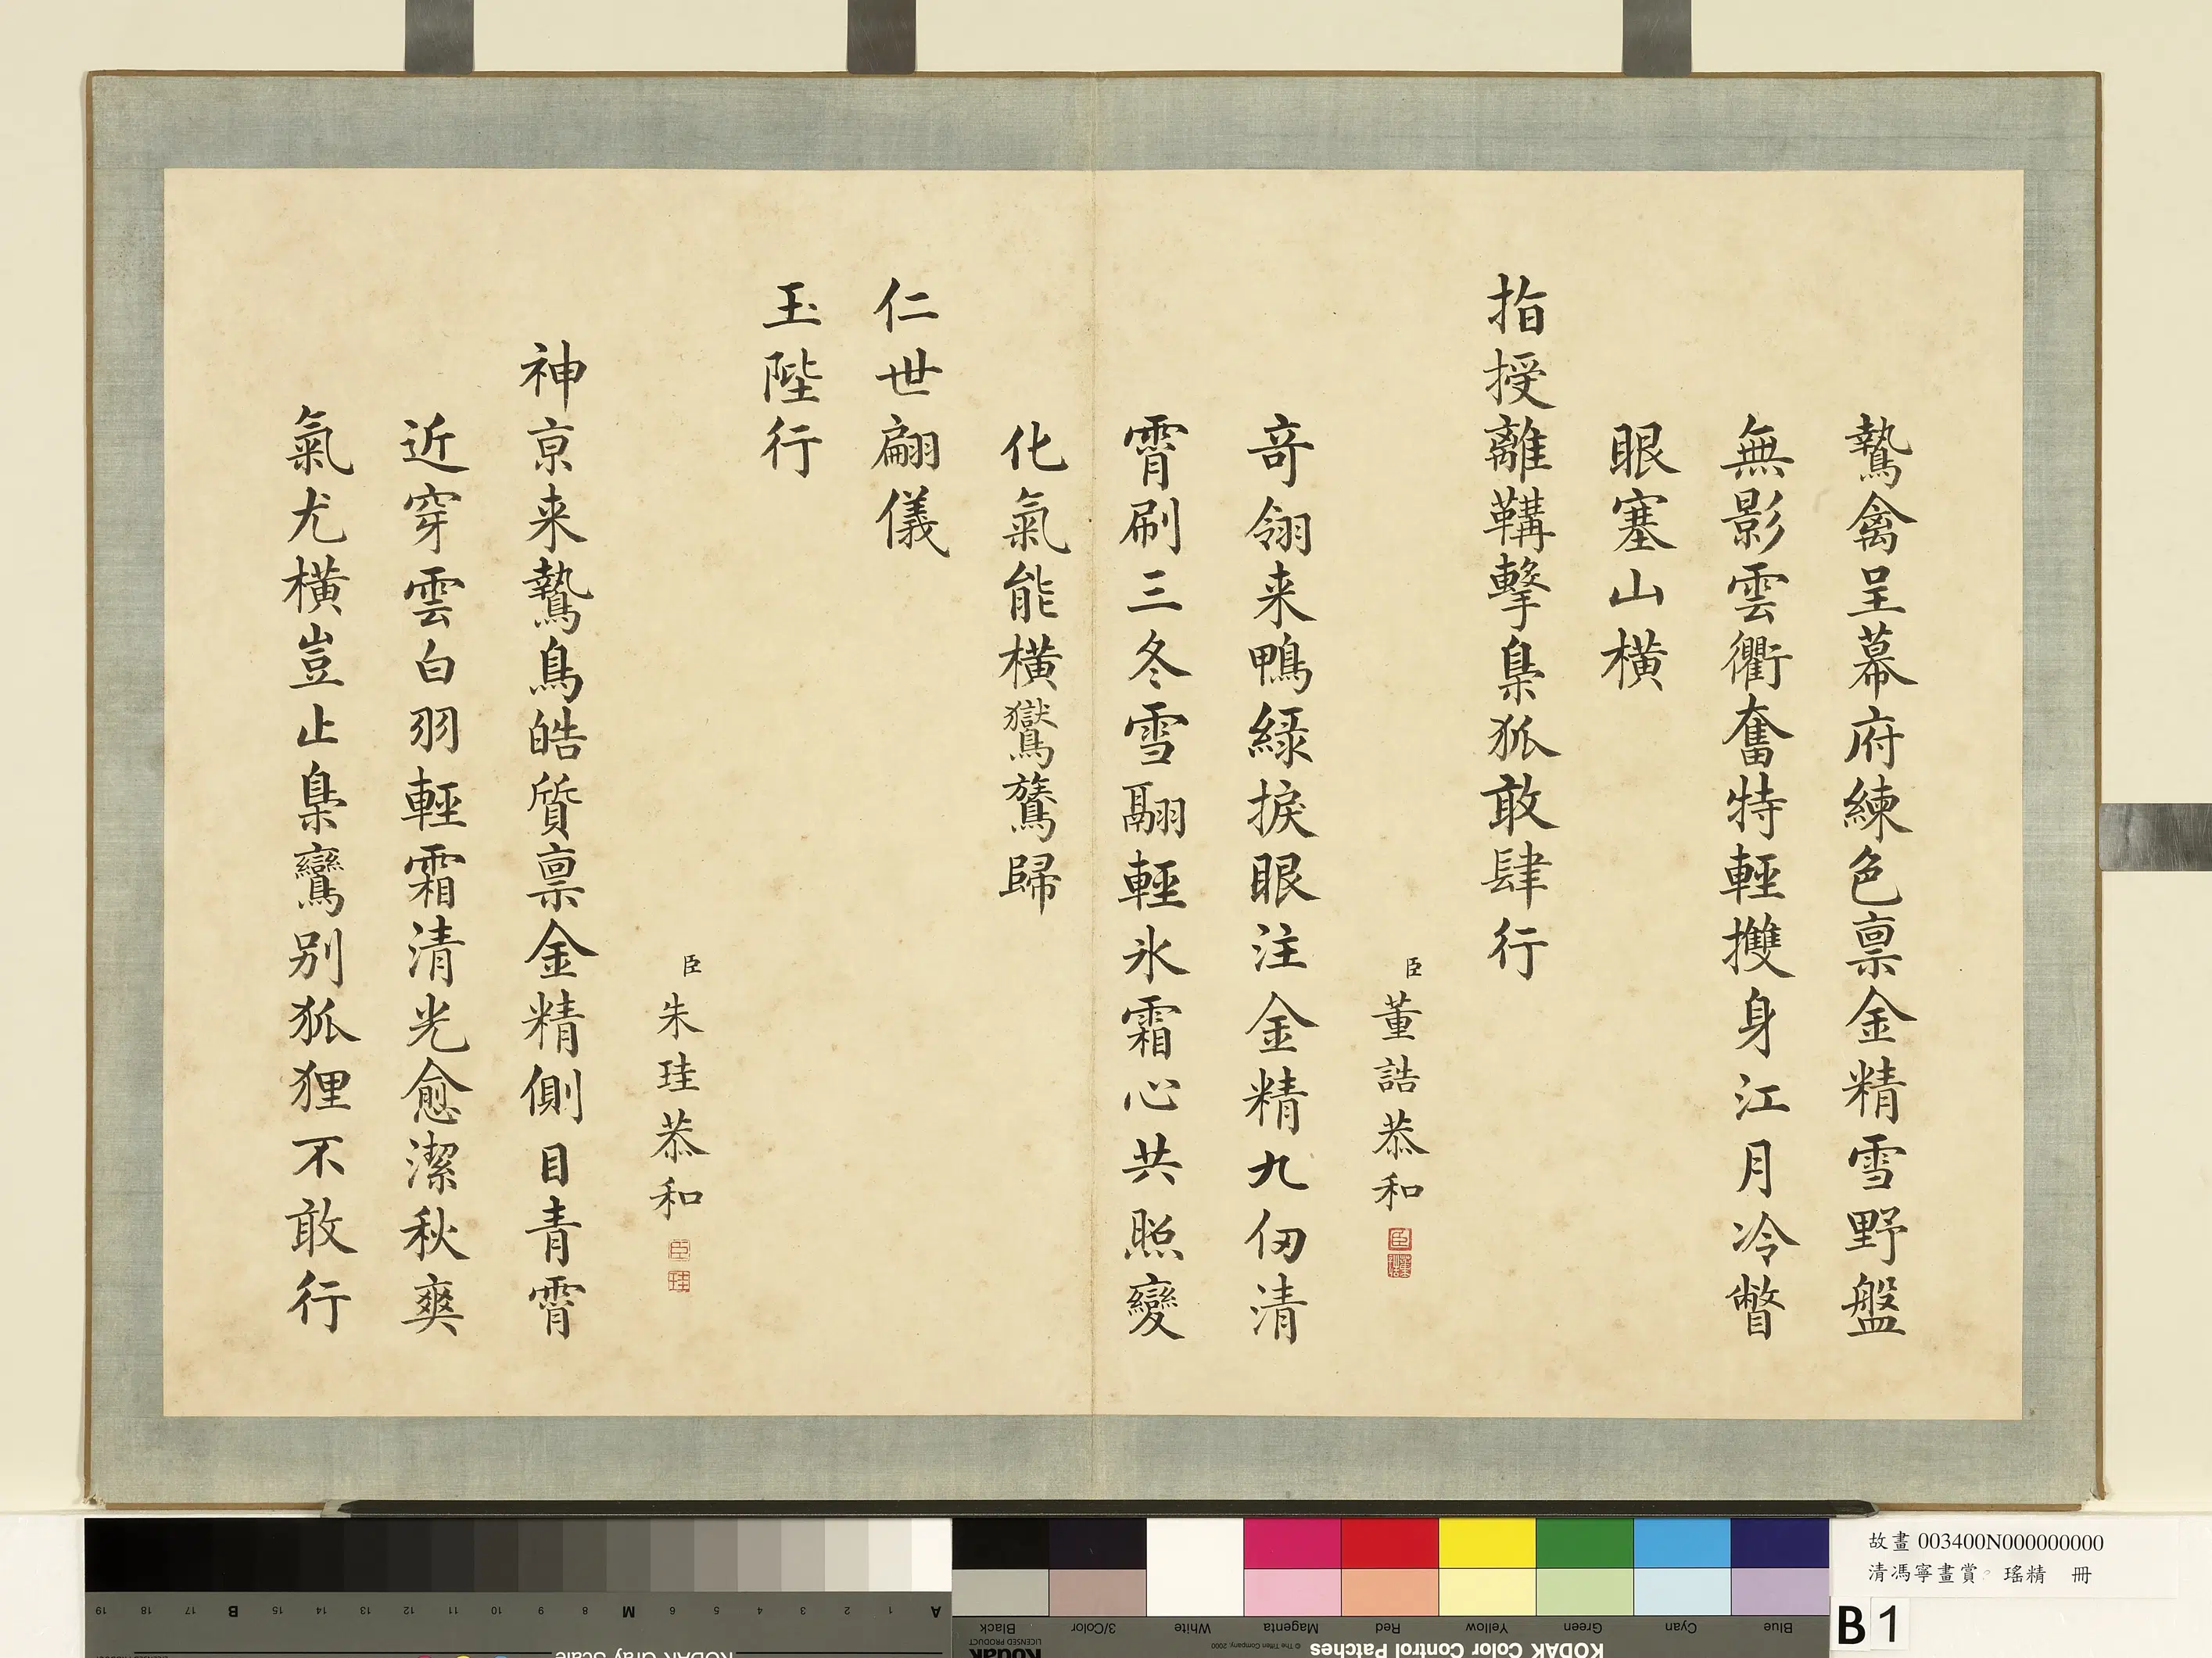 鷙禽呈幕府練色禀金精雪野盤
無影雲衢奮特輕㩳身江月冷瞥
眼塞山橫
指授離韝擊梟狐敢肆行
臣董誥恭和
奇翎来鴨綠捩眼注金精九仞清
霄刷三冬雪翮輕氷霜心共照變
化氣能橫鸑鷟歸
仁世翩儀
玉陛行
臣朱珪恭和
臣珪
神京来鷙鳥皓質禀金精側目青霄
近穿雲白羽輕霜清光愈潔秋爽
氣尤橫豈止梟鸞别狐狸不敢行
故畫 003400N000000000
清馮寧畫賞 瑤精 冊
B 1
19 18 17 B 15 14 13 12 11 10 9 8 M 6 5 4 3 2 1 A
Black 3/Color White Magenta Red Yellow Green Cyan Blue
Kodak LICENSED PRODUCT © The Tiffen Company, 2000 KODAK Color Control Patches
KODAK Gray Scale